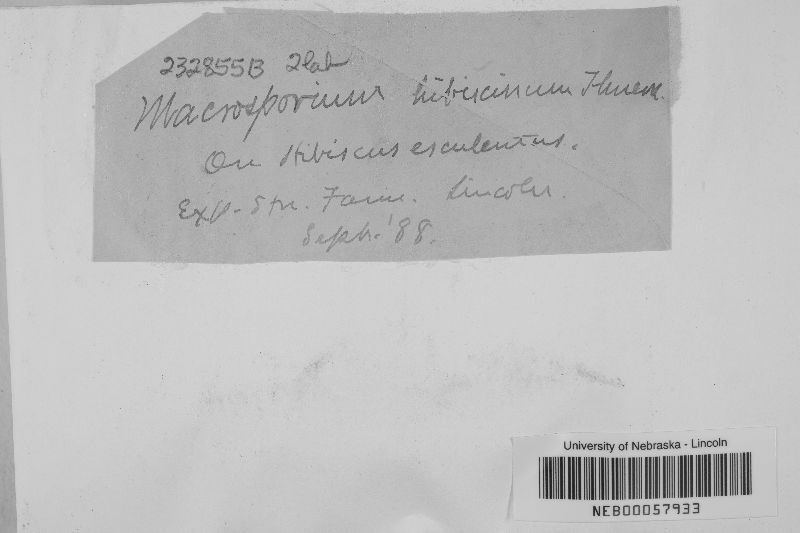 232855B 2lab
Macrosporium hibiscinum Thuem.
On Hibiscus esculentus.
Exp. Stn. Farm. Lincoln.
Sept. '88.
University of Nebraska - Lincoln
NEB00057933